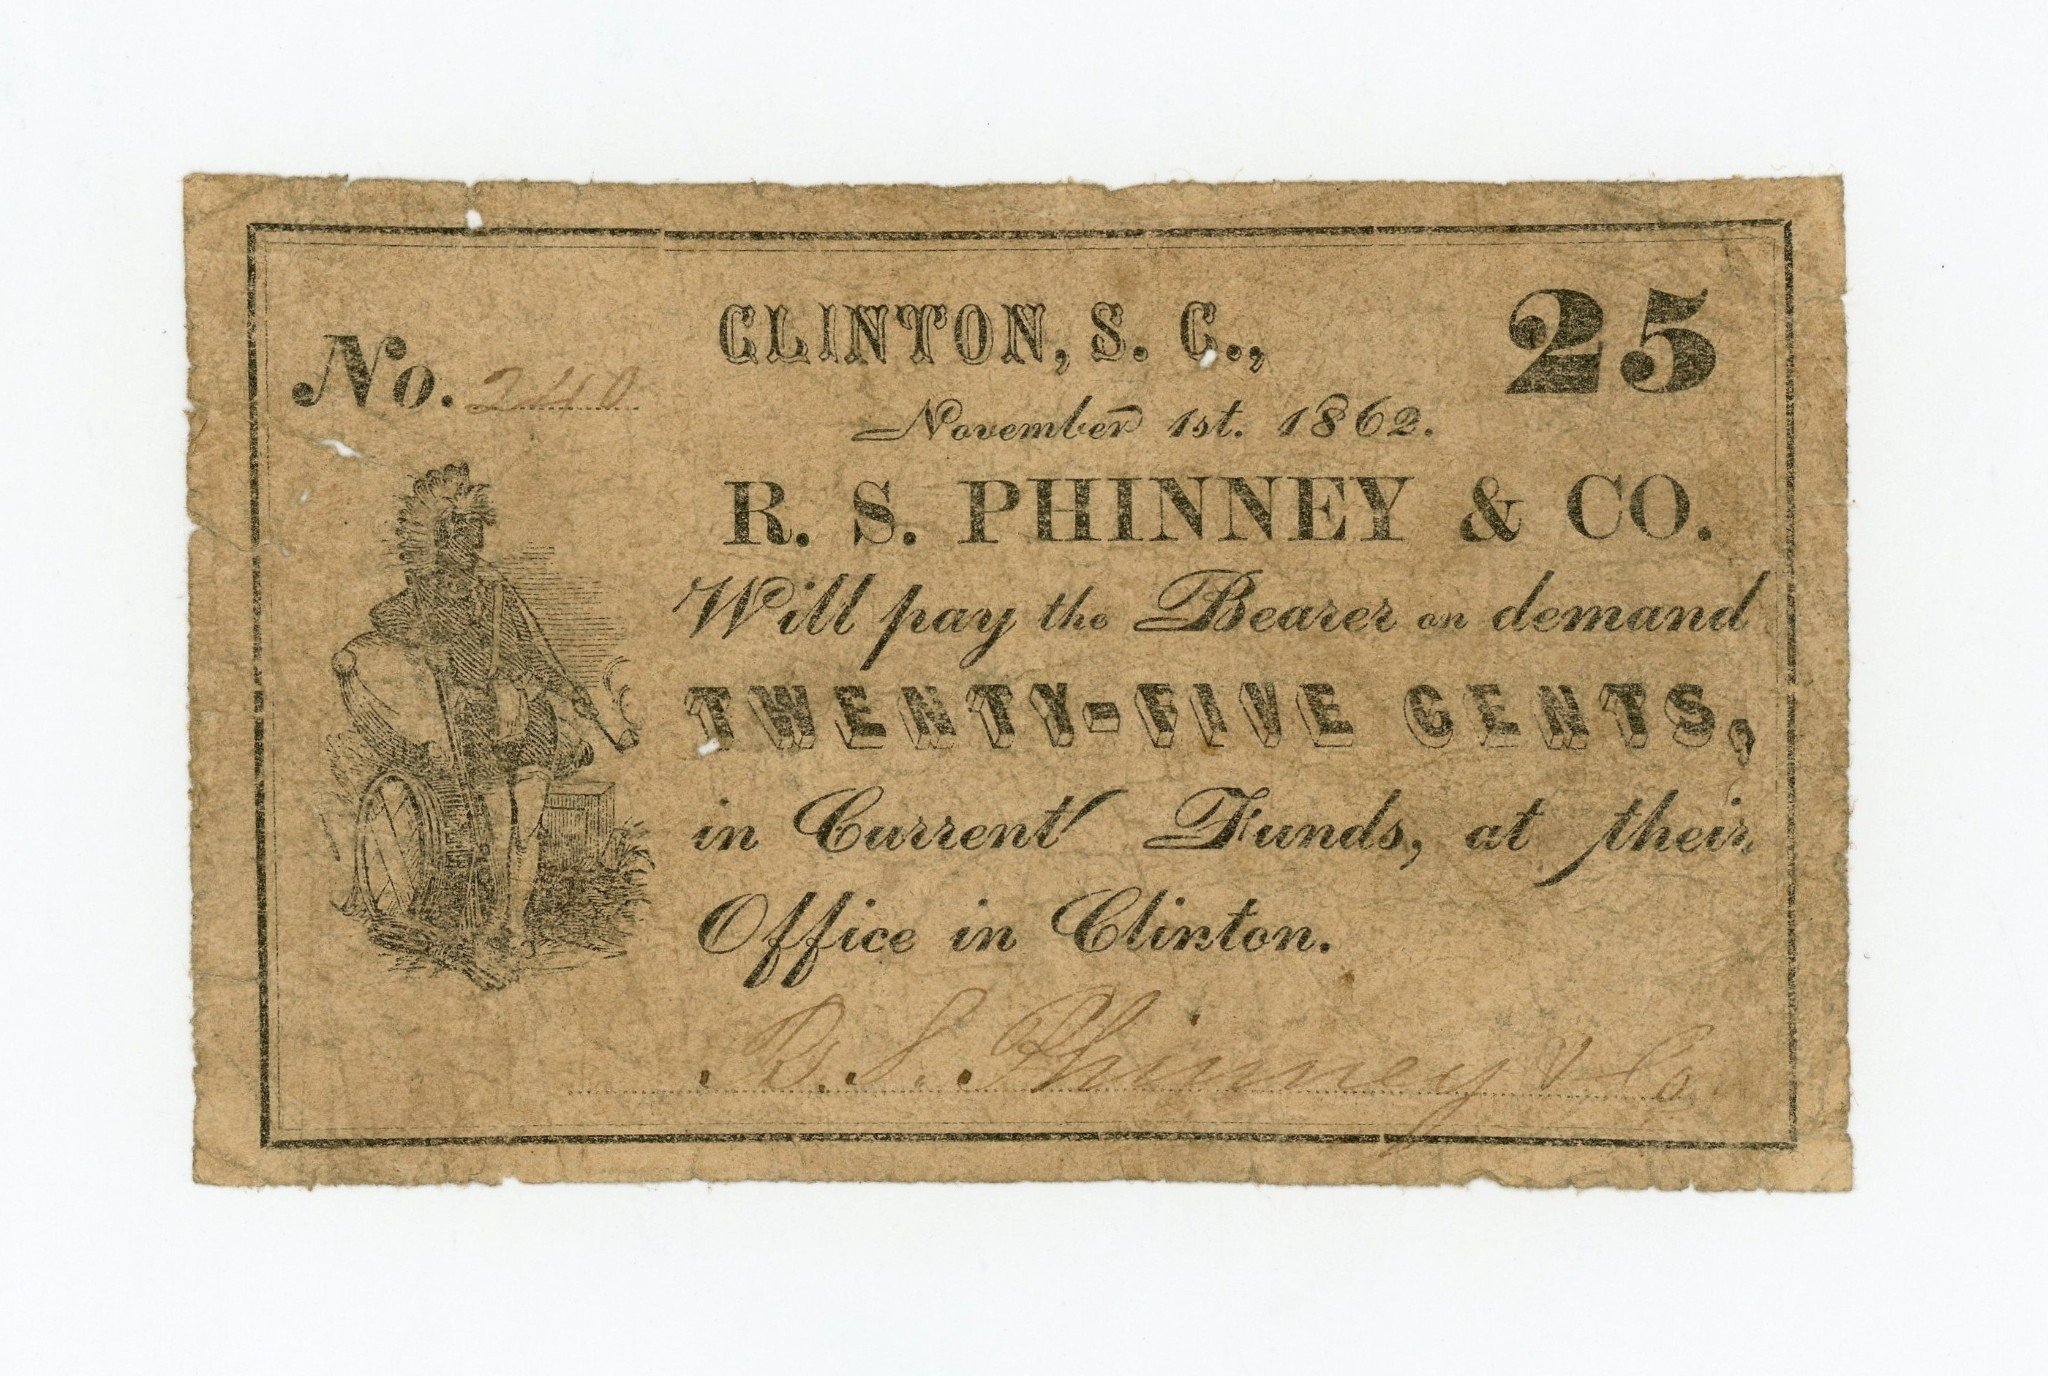 CLINTON, S. C.,
25
No. 240
November 1st. 1862.
R. S. PHINNEY & CO.
Will pay the Bearer on demand
TWENTY-FIVE CENTS,
in Current Funds, at their
Office in Clinton.
R. S. Phinney & Co.